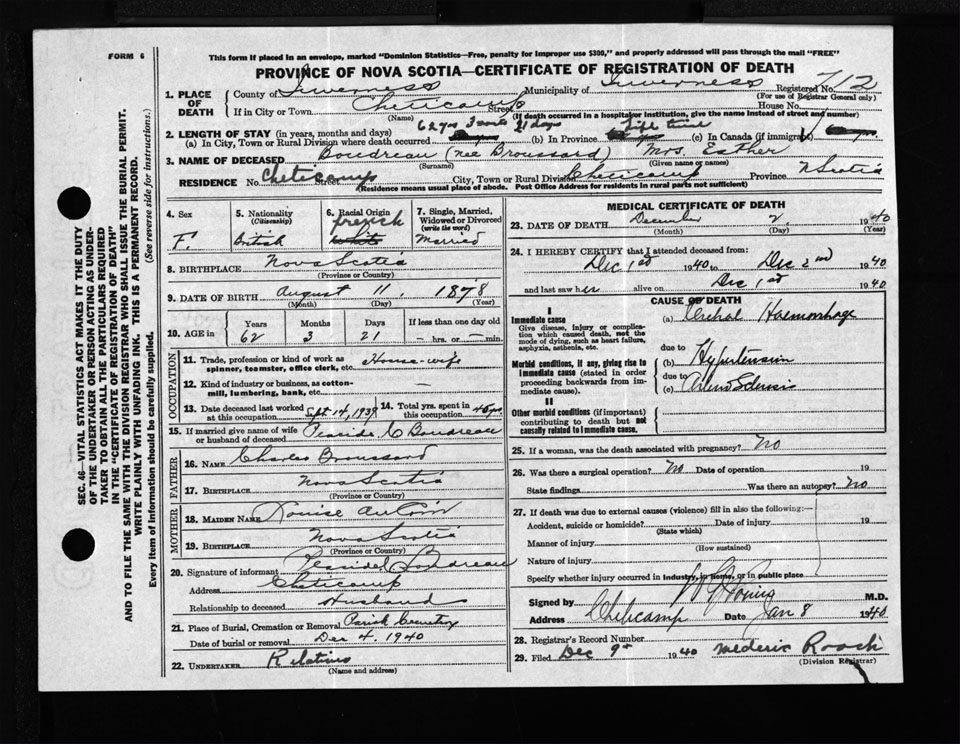 FORM 6
This form if placed in an envelope, marked "Dominion Statistics—Free, penalty for improper use $300," and properly addressed will pass through the mail "FREE"
PROVINCE OF NOVA SCOTIA—CERTIFICATE OF REGISTRATION OF DEATH
SEC. 46—VITAL STATISTICS ACT MAKES IT THE DUTY
OF THE UNDERTAKER OR PERSON ACTING AS UNDER-
TAKER TO OBTAIN ALL THE PARTICULARS REQUIRED
IN THE "CERTIFICATE OF REGISTRATION OF DEATH"
AND TO FILE THE SAME WITH THE DIVISION REGISTRAR WHO SHALL ISSUE THE BURIAL PERMIT.
WRITE PLAINLY WITH UNFADING INK. THIS IS A PERMANENT RECORD.
Every item of information should be carefully supplied. (See reverse side for instructions.)
1. PLACE OF DEATH County of Inverness Municipality of Inverness Registered No. 712
(For use of Registrar General only)
If in City or Town Cheticamp Street House No.
(Name) (If death occurred in a hospital or institution, give the name instead of street and number)
2. LENGTH OF STAY (in years, months and days) 62 yrs 3 months 21 days Life time
(a) In City, Town or Rural Division where death occurred (b) In Province (c) In Canada (if immigrant)
3. NAME OF DECEASED Boudreau (nee Broussard) Mrs. Esther
(Surname) (Given name or names)
RESIDENCE No. Cheticamp Street City, Town or Rural Division Cheticamp Province N Scotia
(Residence means usual place of abode. Post Office Address for residents in rural parts not sufficient)
4. Sex F.
5. Nationality (Citizenship) British
6. Racial Origin french
7. Single, Married, Widowed or Divorced (write the word) Married
8. BIRTHPLACE Nova Scotia
(Province or Country)
9. DATE OF BIRTH August 11, 1878
(Month) (Day) (Year)
10. AGE in Years Months Days If less than one day old
62 3 21 hrs. or min.
OCCUPATION
11. Trade, profession or kind of work as spinner, teamster, office clerk, etc. House-wife
12. Kind of industry or business, as cotton-mill, lumbering, bank, etc. —
13. Date deceased last worked at this occupation Sept 14, 1939 14. Total yrs. spent in this occupation 45 yrs.
15. If married give name of wife or husband of deceased Peaside C Boudreau
FATHER
16. NAME Charles Broussard
17. BIRTHPLACE Nova Scotia
(Province or Country)
MOTHER
18. MAIDEN NAME Louise
19. BIRTHPLACE Nova Scotia
(Province or Country)
20. Signature of informant Boudreau
Address Cheticamp
Relationship to deceased Husband
21. Place of Burial, Cremation or Removal Parish Cemetery
Date of burial or removal Dec 4, 1940
22. UNDERTAKER Relatives
(Name and address)
MEDICAL CERTIFICATE OF DEATH
23. DATE OF DEATH December 2 1940
(Month) (Day) (Year)
24. I HEREBY CERTIFY that I attended deceased from:
Dec 1st 1940 to Dec 2nd 1940
and last saw her alive on Dec 1st 1940
CAUSE OF DEATH
I
Immediate cause (a) Cerebral Haemorrhage
Give disease, injury or complication which caused death, not the mode of dying, such as heart failure, asphyxia, asthenia, etc.
due to
Morbid conditions, if any, giving rise to immediate cause (stated in order proceeding backwards from immediate cause). (b) Hypertension
due to
(c) Arterio Sclerosis
II
Other morbid conditions (if important) contributing to death but not causally related to immediate cause.
25. If a woman, was the death associated with pregnancy? No
26. Was there a surgical operation? No Date of operation 19
State findings Was there an autopsy? No
27. If death was due to external causes (violence) fill in also the following:—
Accident, suicide or homicide? Date of injury 19
(State which)
Manner of injury
(How sustained)
Nature of injury
Specify whether injury occurred in industry, in home, or in public place
Signed by M.D.
Address Cheticamp Date Jan 8 1940
28. Registrar's Record Number
29. Filed Dec 9th 1940 Mederic Roach
(Division Registrar)